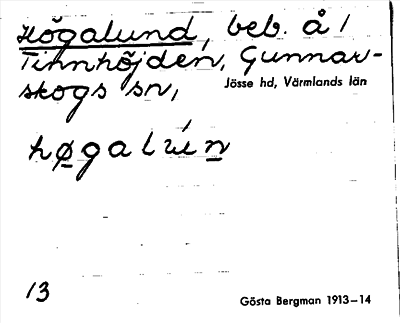 Högalund, beb. å 1
Tinnhöjden, Gunnar-
skogs sn,
Jösse hd, Värmlands län
høgalún
13
Gösta Bergman 1913–14